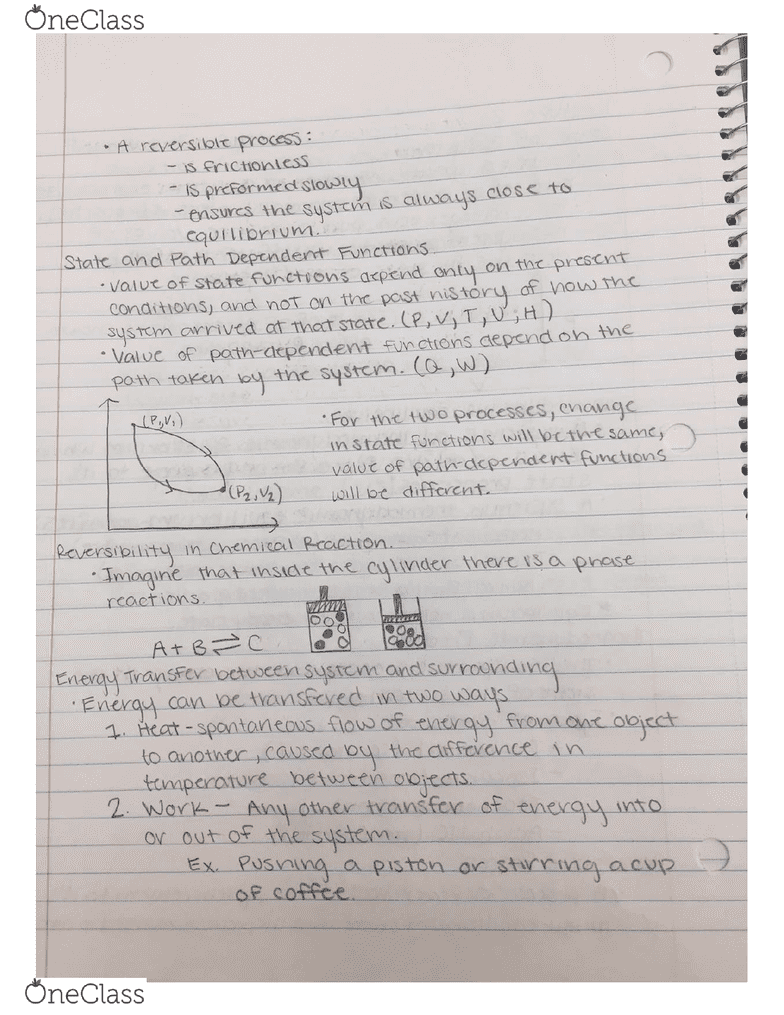 OneClass
• A reversible process:
- is frictionless
- is preformed slowly
- ensures the system is always close to
equilibrium.
State and Path Dependent Functions
• Value of state functions depend only on the present
conditions, and not on the past history of how the
system arrived at that state. (P, V, T, U, H)
• Value of path-dependent functions depend on the
path taken by the system. (Q, W)
(P₁V₁)
• For the two processes, change
in state functions will be the same,
value of path-dependent functions
(P₂, V₂)
will be different.
Reversibility in Chemical Reaction.
• Imagine that inside the cylinder there is a phase
reactions.
A + B ⇌ C
Energy Transfer between system and surrounding
• Energy can be transfered in two ways
1. Heat - spontaneous flow of energy from one object
to another, caused by the difference in
temperature between objects.
2. Work - Any other transfer of energy into
or out of the system.
Ex. Pushing a piston or stirring a cup
of coffee.
OneClass